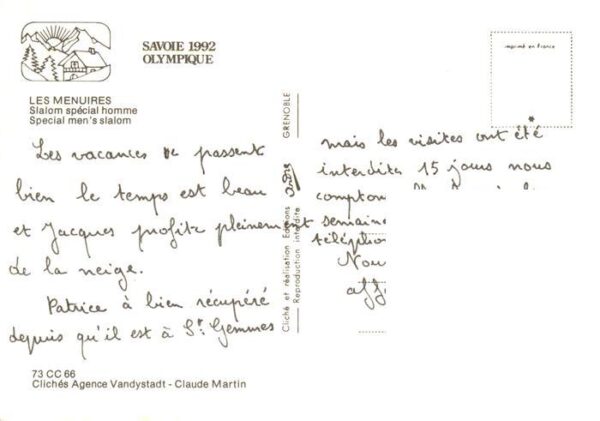 SAVOIE 1992
OLYMPIQUE
imprimé en France
LES MENUIRES
Slalom spécial homme
Special men's slalom
Les vacances se passent
bien le temps est beau
et Jacques profite pleinement
de la neige.
Patrice à bien récupéré
depuis qu'il est à St Gemmes
GRENOBLE
Cliché et réalisation Editions
Reproduction interdite
mais les visites ont été
interdites 15 jours nous
semaine
Nou
73 CC 66
Clichés Agence Vandystadt - Claude Martin